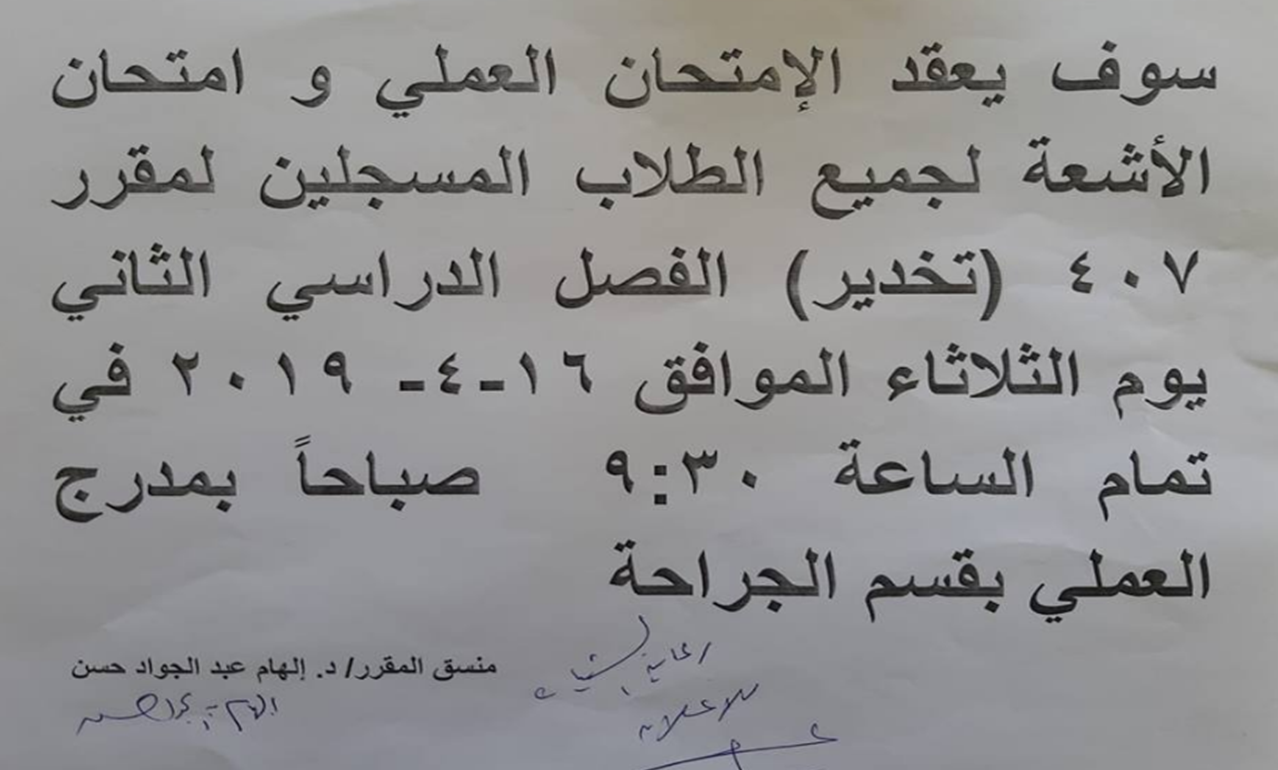 سوف يعقد الإمتحان العملي و امتحان
الأشعة لجميع الطلاب المسجلين لمقرر
٤٠٧ (تخدير) الفصل الدراسي الثاني
يوم الثلاثاء الموافق ١٦-٤- ٢٠١٩ في
تمام الساعة ٩:٣٠ صباحاً بمدرج
العملي بقسم الجراحة
منسق المقرر/ د. إلهام عبد الجواد حسن
رعاية الشباب
للاعلان